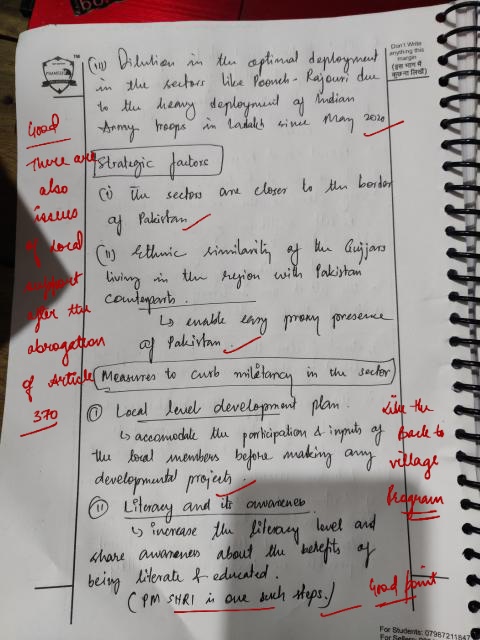 Don't Write
anything this
margin
(इस भाग में
कुछ ना लिखें)
TM
(iii) Dilution in the optimal deployment
in the sectors like Poonch - Rajouri due
to the heavy deployment of Indian
Army troops in Ladakh since May 2020
Good
There are
also
issues
of local
support
after the
abrogation
of Article
370
Strategic factors
(i) The sectors are closer to the border
of Pakistan
(ii) Ethnic similarity of the Gujjars
living in the region with Pakistan
counterparts.
↳ enable easy proxy presence
of Pakistan.
Measures to curb militancy in the sector
(i) Local level development plan.
↳ accomodate the participation & inputs of
the local members before making any
developmental projects.
Like the
Back to
village
Program
(ii) Literacy and its awareness
↳ increase the literacy level and
share awareness about the benefits of
being literate & educated.
(PM SHRI is one such steps.)
Good point
For Students: 07987211847